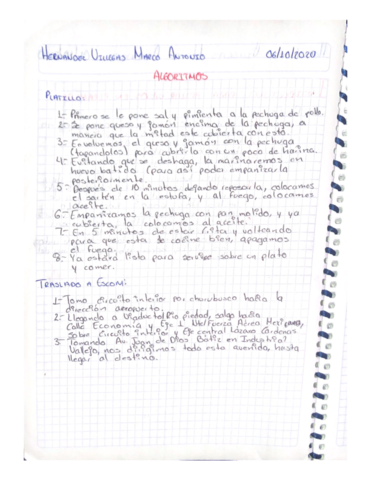 Hernández Villegas Marco Antonio 06/10/2020
Algoritmos
Platillo:
1- Primero se le pone sal y pimienta a la pechuga de pollo.
2- Se pone queso y jamón encima de la pechuga, a
manera que la mitad este cubierta con esto.
3- Envolvemos, el queso y jamón con la pechuga
(tapandolos) para cubrirla con un poco de harina.
4- Evitando que se deshaga, la marinaremos en
huevo batido (para así poder empanizarla
posteriormente.
5- Después de 10 minutos dejando reposarla, colocamos
el sartén en la estufa, y al fuego, colocamos
aceite.
6- Empanizamos la pechuga con pan molido, y ya
cubierta, la colocamos al aceite.
7- En 5 minutos de estar lista y volteando
para que esta se cocine bien, apagamos
el fuego.
8- Ya estará listo para servirse sobre un plato
y comer.
Traslado a Escom:
1- Tomo circuito interior por churubusco hacia la
dirección aeropuerto.
2- Llegando a Viaducto/Río piedad, salgo hacia
Calle Economía y Eje 1 Nte/Fuerza Aérea Mexicana,
sobre Circuito interior y Eje central Lázaro Cárdenas
3- Tomando Av. Juan de Dios Bátiz en Industrial
Vallejo, nos dirigimos todo esta avenida, hasta
llegar al destino.